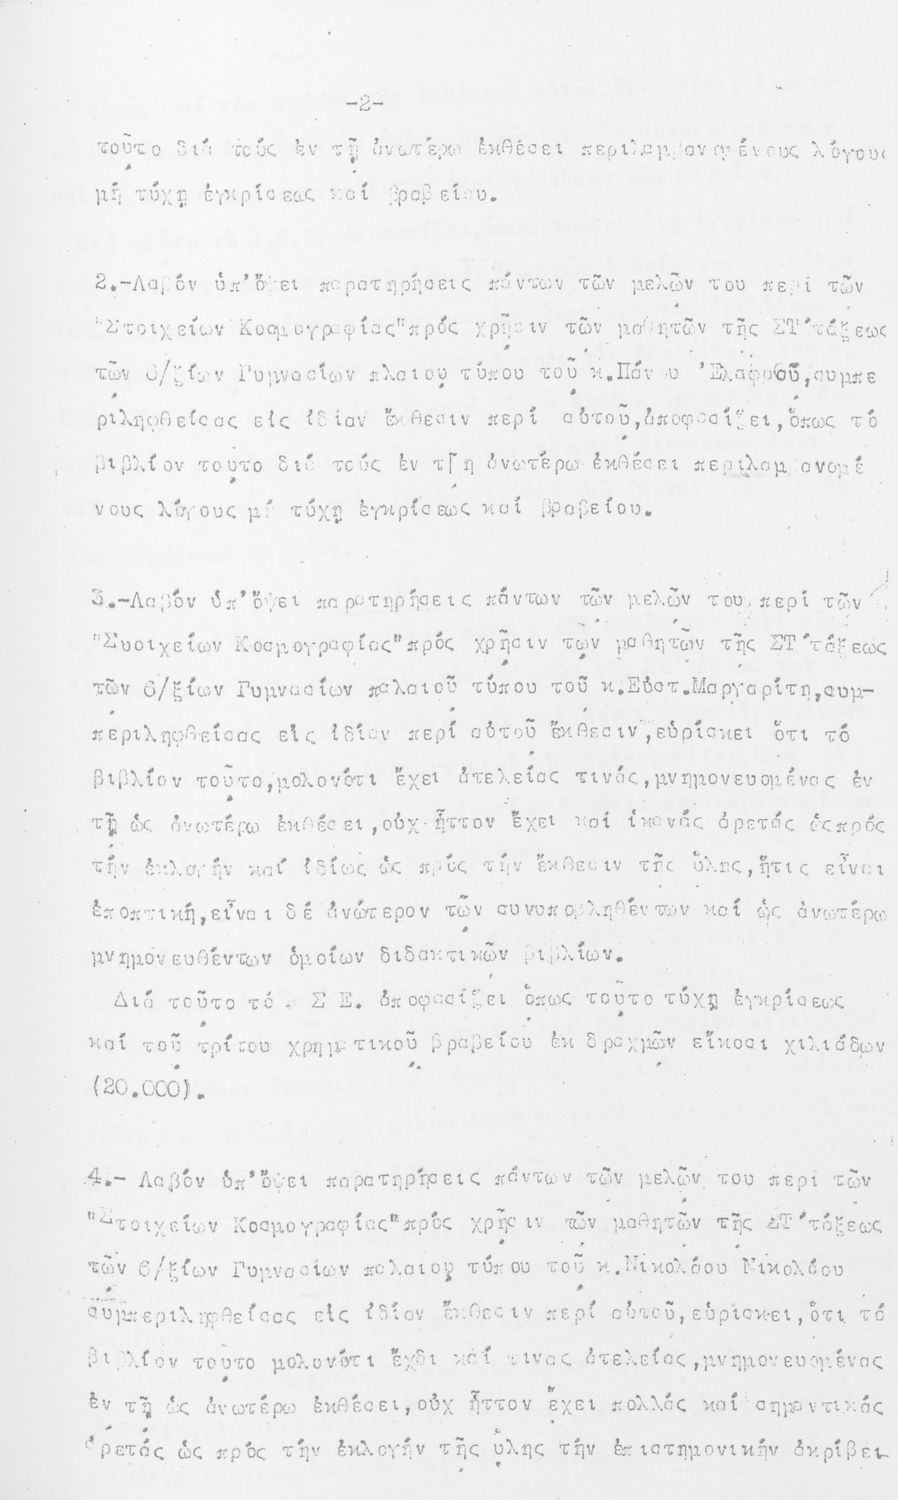 -2-
τοῦτο διά τούς ἐν τῇ ἀνωτέρω ἐκθέσει περιλαμβανομένους λόγους
μή τύχῃ ἐγκρίσεως καί βραβείου.
2.-Λαβόν ὑπ'ὄψει παρατηρήσεις πάντων τῶν μελῶν του περί τῶν
"Στοιχείων Κοσμογραφίας"πρός χρῆσιν τῶν μαθητῶν τῆς ΣΤ'τάξεως
τῶν 6/ξίων Γυμνασίων πλαιου τύπου τοῦ κ.Πάνου Ἐλαφοῦ,συμπε
ριληφθείσας εἰς ἰδίαν ἔκθεσιν περί αὐτοῦ,ἀποφασίζει,ὅπως τό
βιβλίον τουτο διά τούς ἐν τῇ ἀνωτέρω ἐκθέσει περιλαμβανομέ
νους λόγους μή τύχῃ ἐγκρίσεως καί βραβείου.
3.-Λαβόν ὑπ'ὄψει παρατηρήσεις πάντων τῶν μελῶν του περί τῶν
"Συοιχείων Κοσμογραφίας"πρός χρῆσιν των μαθητῶν τῆς ΣΤ'τάξεως
τῶν 6/ξίων Γυμνασίων παλαιοῦ τύπου τοῦ κ.Εὐστ.Μαργαρίτη,συμ-
περιληφθείσας εἰς ἰδίαν περί αὐτοῦ ἔκθεσιν,εὑρίσκει ὅτι τό
βιβλίον τοῦτο,μολονότι ἔχει ἀτελείας τινάς,μνημονευομένας ἐν
τῇ ὡς ἀνωτέρω ἐκθέσει,οὐχ ἧττον ἔχει καί ἱκανάς ἀρετάς ὡςπρός
τήν ἐκλογήν καί ἰδίως ὡς πρός τήν ἔκθεσιν τῆς ὕλης,ἥτις εἶναι
ἐποπτική,εἶναι δέ ἀνώτερον τῶν συνυποβληθέντων καί ὡς ἀνωτέρω
μνημονευθέντων ὁμοίων διδακτικῶν βιβλίων.
Διά τοῦτο τό Σ Ε. ἀποφασίζει ὅπως τοῦτο τύχῃ ἐγκρίσεως
καί τοῦ τρίτου χρηματικοῦ βραβείου ἐκ δραχμῶν εἴκοσι χιλιάδων
(20.000).
4.- Λαβόν ὑπ'ὄψει παρατηρήσεις πάντων τῶν μελῶν του περί τῶν
"Στοιχείων Κοσμογραφίας"πρός χρῆσιν τῶν μαθητῶν τῆς ΣΤ'τάξεως
τῶν 6/ξίων Γυμνασίων παλαιου τύπου τοῦ κ.Νικολάου Νικολάου
συμπεριληφθείσας εἰς ἰδίαν ἔκθεσιν περί αὐτοῦ,εὑρίσκει,ὅτι τό
βιβλίον τουτο μολονότι ἔχδι καί τινας ἀτελείας,μνημονευομένας
ἐν τῇ ὡς ἀνωτέρω ἐκθέσει,οὐχ ἧττον ἔχει πολλάς καί σημαντικάς
ἀρετάς ὡς πρός τήν ἐκλογήν τῆς ὕλης τήν ἐπιστημονικήν ἀκρίβει-